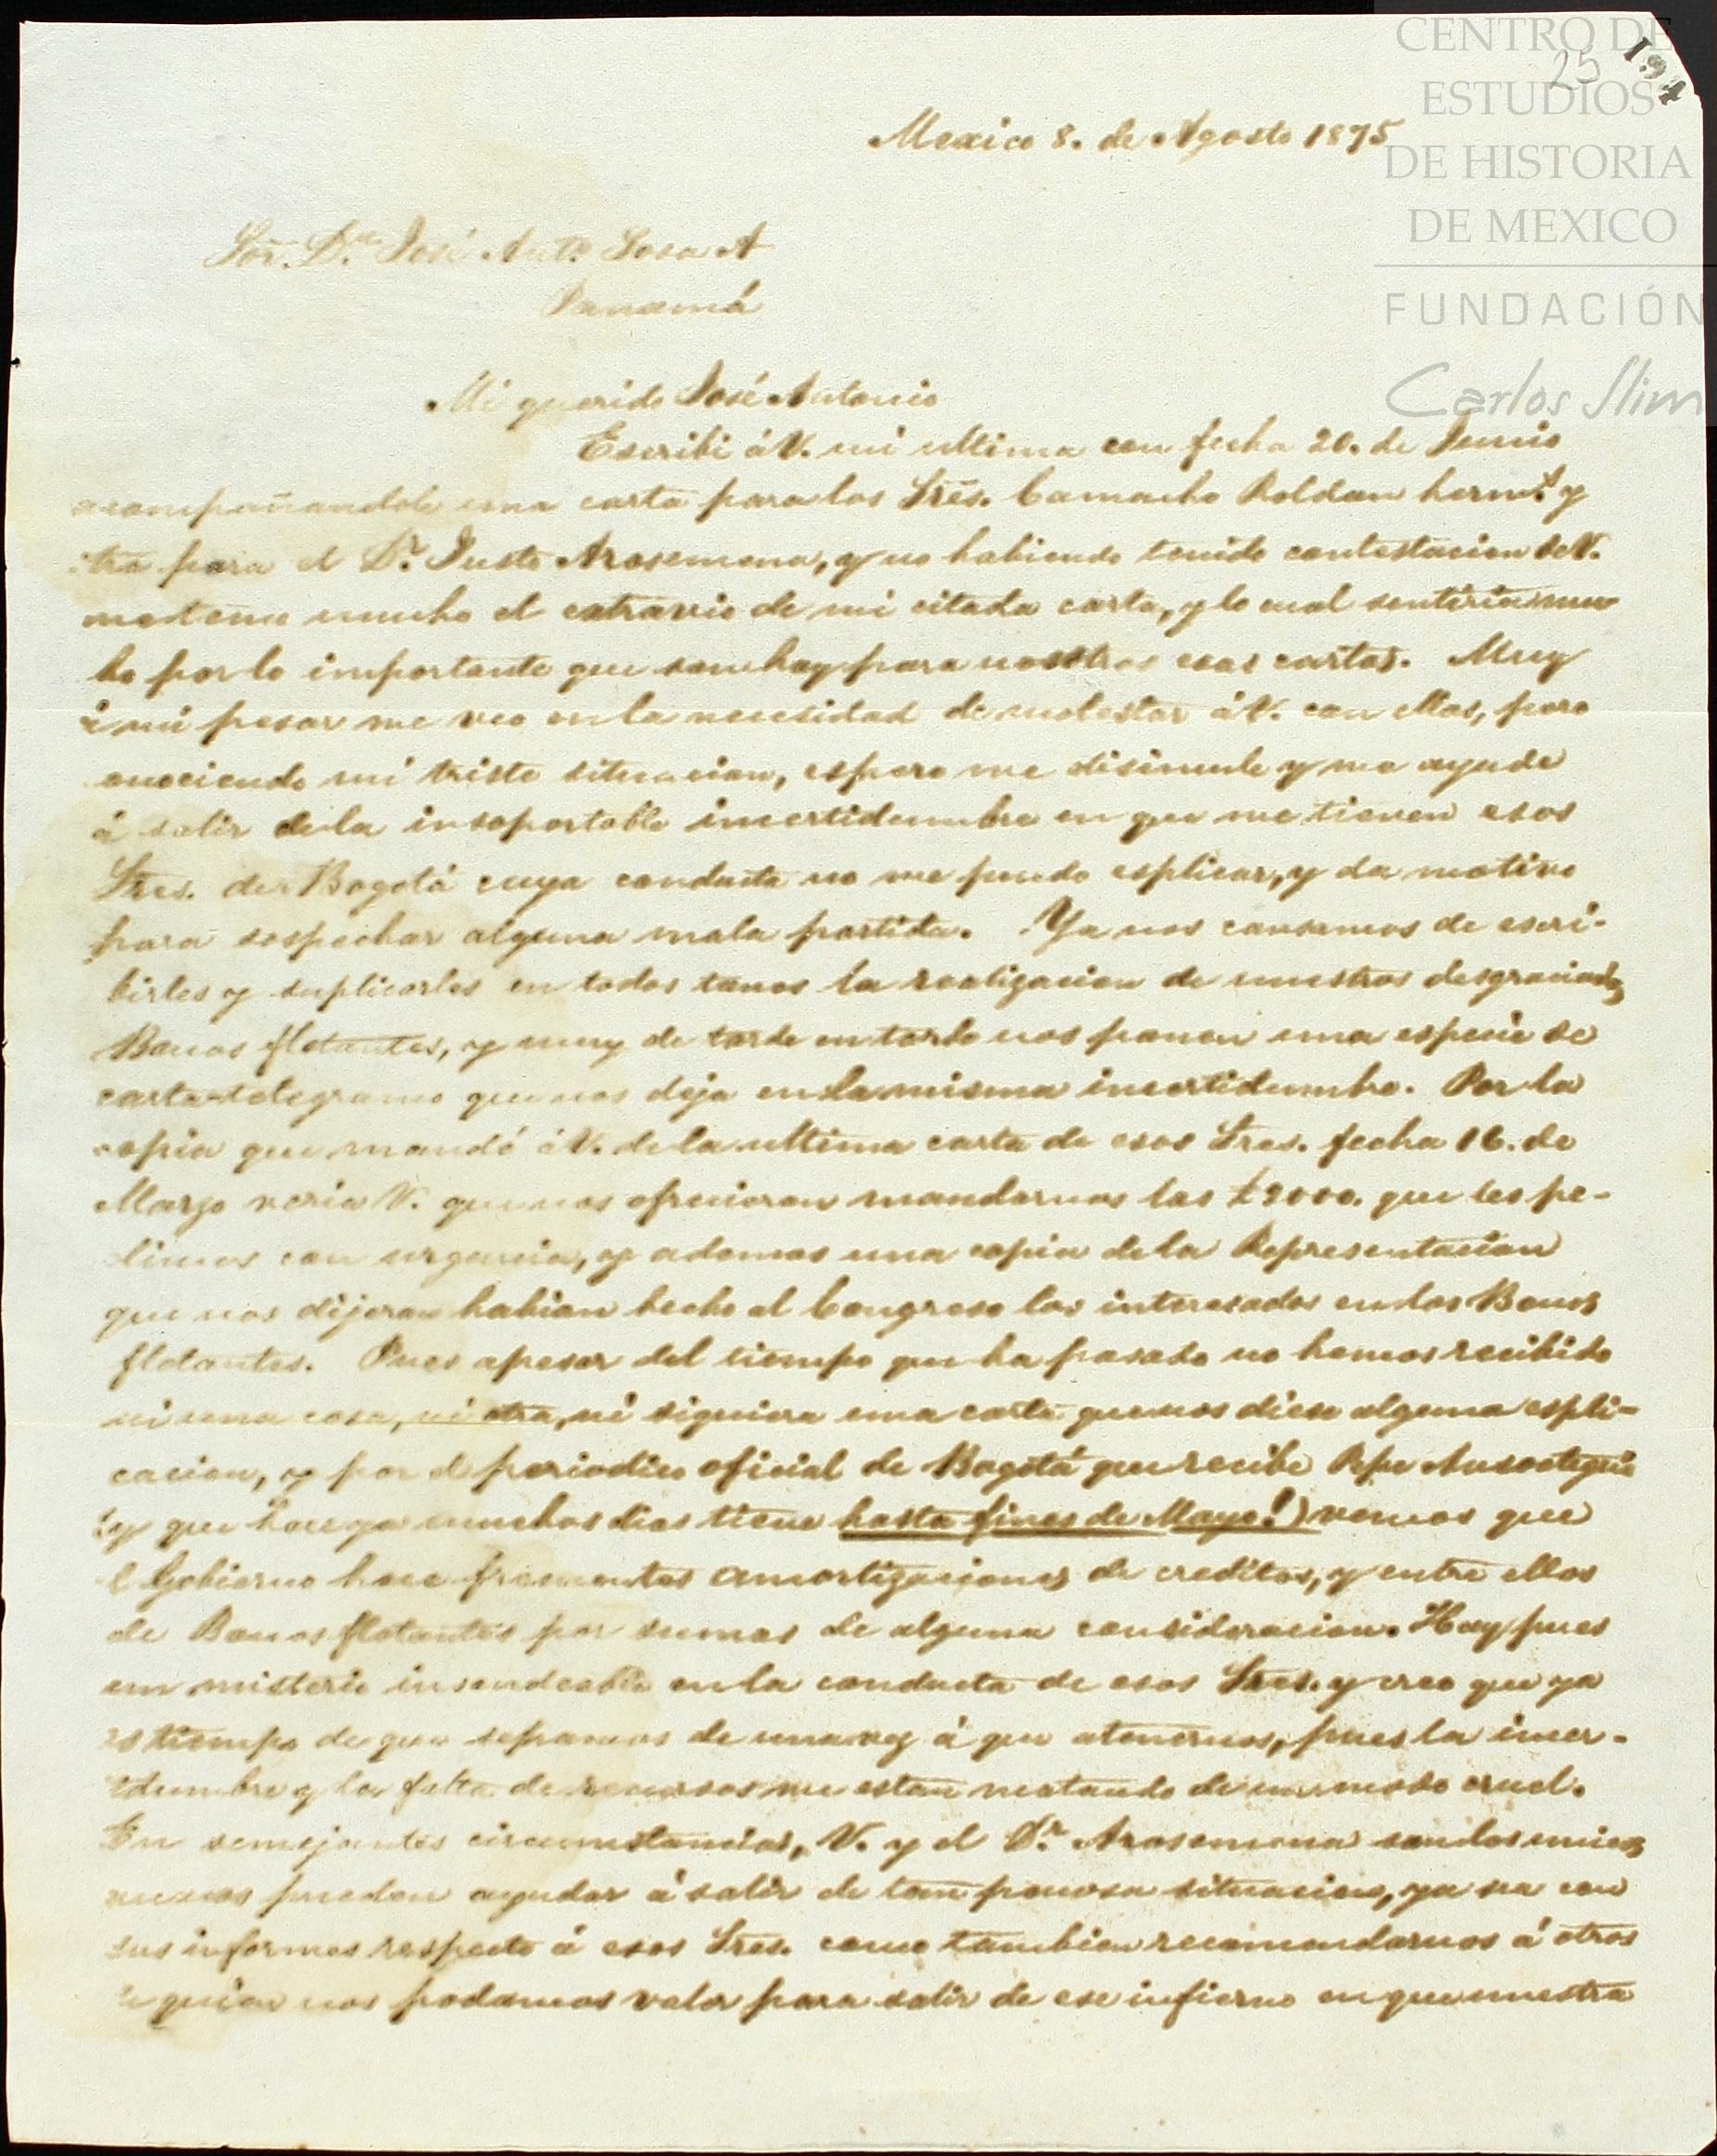 CENTRO DE
ESTUDIOS
DE HISTORIA
DE MEXICO
FUNDACIÓN
Carlos Slim
25
194
Mexico 8. de Agosto 1875
Sor. Dn. José Anto. Sosa A
Panamá
Mi querido José Antonio
Escribi á V. mi ultima con fecha 20. de Junio
acompañandole una carta para los Sres. Camacho Roldan herms. y
otra para el Dr. Justo Arosemena, y no habiendo tenido contestacion de V.
me temo mucho el extravio de mi citada carta, y lo cual sentiria mu
ho por lo importante que son hoy para nosotros esas cartas. Muy
á mi pesar me veo en la necesidad de molestar á V. con ellas, pero
onociendo mi triste situacion, espero me disimule y me ayude
á salir de la insoportable incertidumbre en que me tienen esos
Sres. de Bogotá cuya conducta no me puedo esplicar, y da motivo
para sospechar alguna mala partida. Ya nos cansamos de escri-
birles y suplicarles en todos tonos la realizacion de nuestros desgraciados
Bonos flotantes, y muy de tarde en tarde nos ponen una especie de
carta-telegrama que nos deja en la misma incertidumbre. Por la
copia que mandé á V. de la ultima carta de esos Sres. fecha 16. de
Marzo veria V. que nos ofrecieron mandarnos las £2000. que les pe-
dimos con urgencia, y ademas una copia de la Representacion
que nos dijeron habian hecho al Congreso los interesados en los Bonos
flotantes. Pues apesar del tiempo que ha pasado no hemos recibido
ni una cosa, ni otra, ni siquiera una carta que nos diese alguna espli-
cacion, y por el periodico oficial de Bogotá que recibe Pepe Ansoategui
(y que hace ya muchos dias tiene hasta fines de Mayo!) vemos que
el Gobierno hace frecuentes amortizaciones de creditos, y entre ellos
de Bonos flotantes por sumas de alguna consideracion. Hay pues
un misterio insondeable en la conducta de esos Sres. y creo que ya
es tiempo de que sepamos de una vez á que atenernos, pues la incer-
tidumbre y la falta de recursos me estan matando de un modo cruel.
En semejantes circumstancias, V. y el Dr. Arosemena son los unicos
que nos pueden ayudar á salir de tan penosa situacion, ya sea con
sus informes respecto á esos Sres. como tambien recomendarnos á otros
de quien nos podamos valer para salir de ese infierno en que nuestra